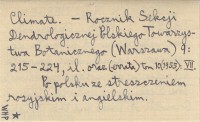 Climate. – Rocznik Sekcji
Dendrologicznej Polskiego Towarzys-
twa Botanicznego (Warszawa) 9:
215-224, il. oraz (errata) tom 10 (1955) VII.
Po polsku ze streszczeniem
rosyjskim i angielskim.
WHP
*